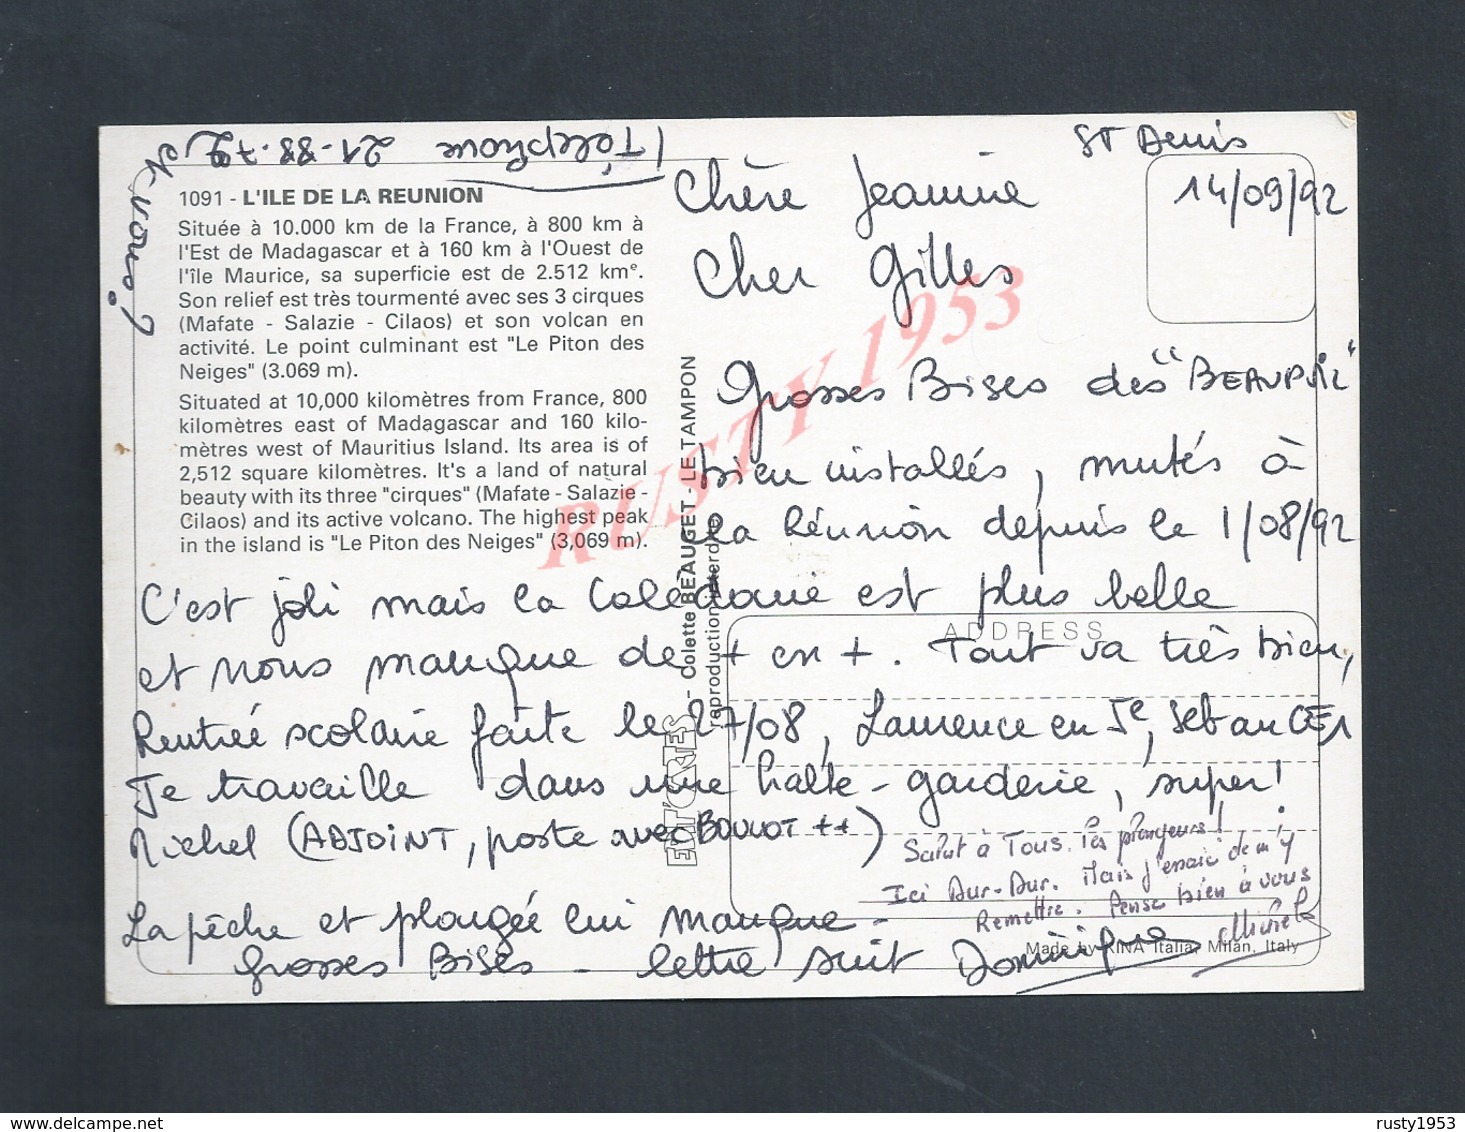 St Denis
14/09/92
Chère Jeannine
Cher Gilles
Grosses Bises des "BEAUPUIL"
bien installés, mutés à
la Réunion depuis le 1/08/92
C'est joli mais la Calédonie est plus belle
et nous manque de + en +. Tout va très bien,
Rentrée scolaire faite le 27/08, Laurence en 5e, Seb au CE1
Je travaille dans une halte-garderie, super!
Michel (ADJOINT, poste avec BOULOT ++)
La pêche et plongée lui manque -
Grosses Bises - lettre suit Dominique
Salut à Tous. les plongeurs!
Ici Dur-Dur. Mais j'essaie de m'y
Remettre. Pense bien à vous
Michel
Téléphone 21-88-79
et vous?
1091 - L'ILE DE LA REUNION
Située à 10.000 km de la France, à 800 km à
l'Est de Madagascar et à 160 km à l'Ouest de
l'île Maurice, sa superficie est de 2.512 km².
Son relief est très tourmenté avec ses 3 cirques
(Mafate - Salazie - Cilaos) et son volcan en
activité. Le point culminant est "Le Piton des
Neiges" (3.069 m).
Situated at 10,000 kilomètres from France, 800
kilomètres east of Madagascar and 160 kilo-
mètres west of Mauritius Island. Its area is of
2,512 square kilomètres. It's a land of natural
beauty with its three "cirques" (Mafate - Salazie -
Cilaos) and its active volcano. The highest peak
in the island is "Le Piton des Neiges" (3,069 m).
EDIT'CARTES - Colette BEAUGET - LE TAMPON
reproduction interdite
ADDRESS
Made by KINA Italia, Milan, Italy
RUSTY 1953
delcampe.net
rusty1953